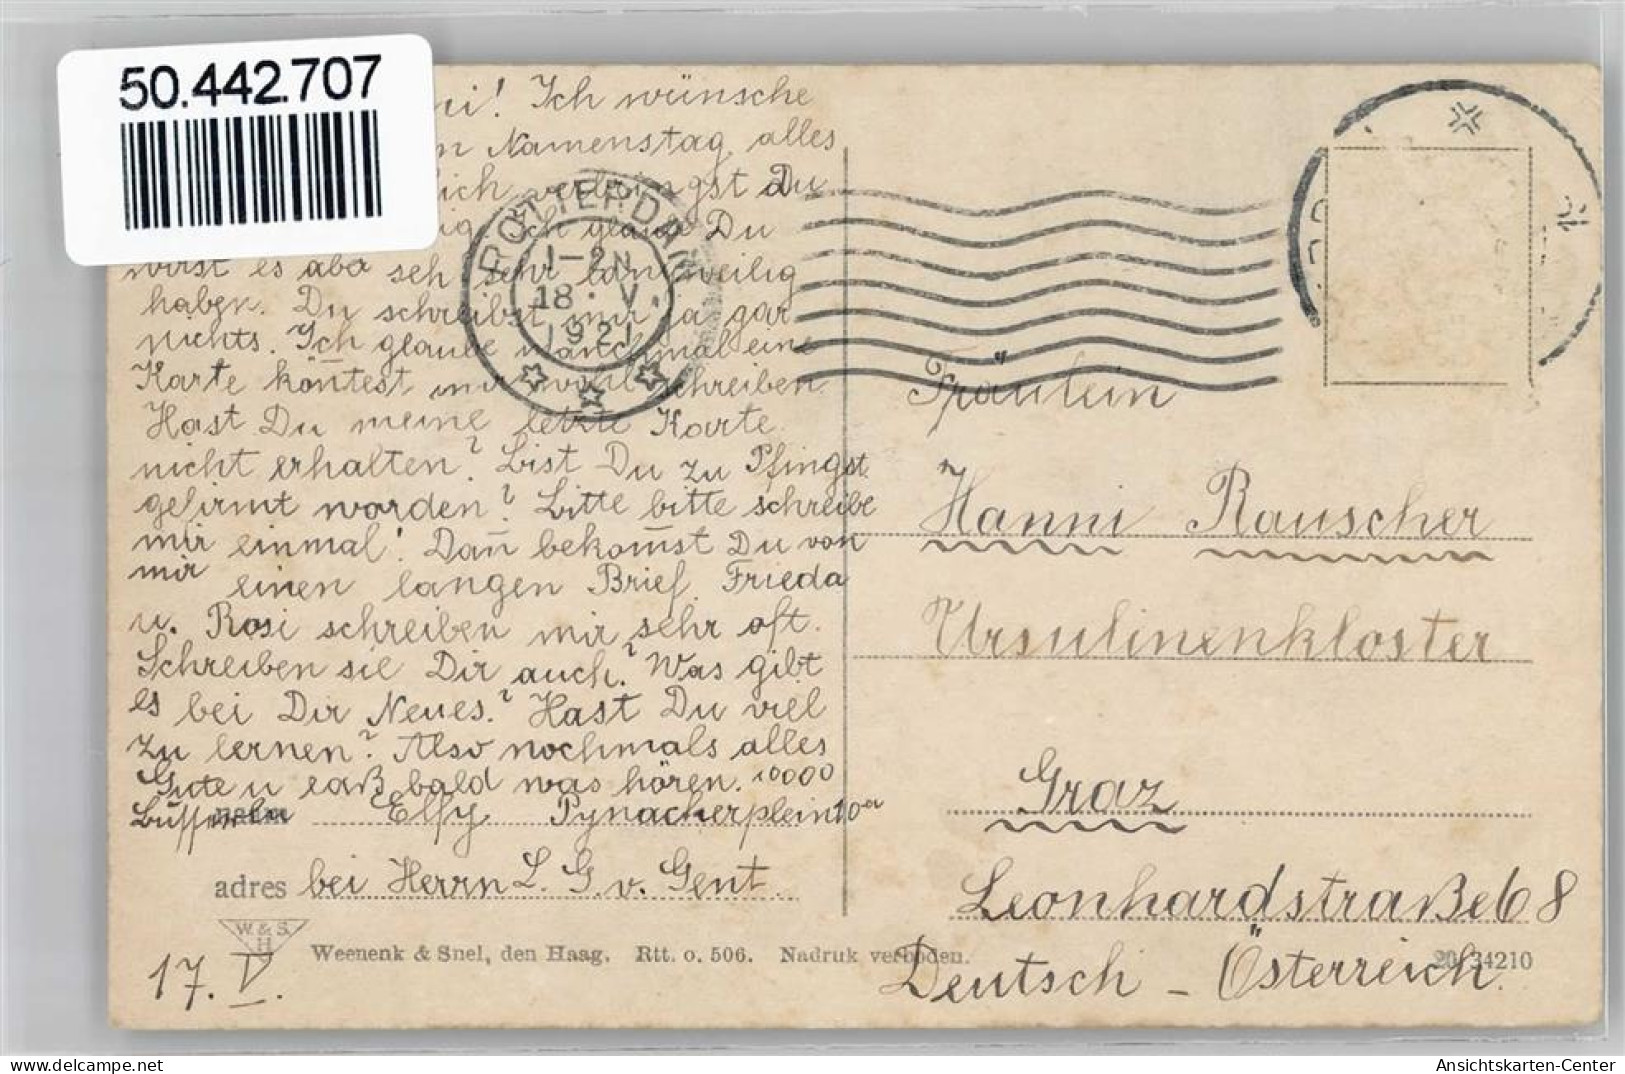 50.442.707
Ich wünsche
Namenstag alles
Du
Ich glaube Du
wirst es aba seh sehr langweilig
haben. Du schreibst mir ja gar
nichts. Ich glaube manchmal eine
Karte kön̄test mir wohl schreiben.
Hast Du meine letzte Karte
nicht erhalten? Bist Du zu Pfingst.
gefirmt worden? Bitte bitte schreibe
mir einmal! Dan̄ bekom̄st Du von
mir einen langen Brief. Frieda
u. Rosi schreiben mir sehr oft.
Schreiben sie Dir auch? Was gibt
es bei Dir Neues? Hast Du viel
zu lernen? Also nochmals alles
Gute u laß bald was hören. 10000
Elfy Pynacherplein 10a
adres bei Herrn L. G. v. Gent.
17. V.
W. & S.
H
Weenenk & Snel, den Haag. Rtt. o. 506. Nadruk verboden.
34210
ROTTERDAM
1-2 N
18 · V.
1921
Fräulein
Hanni Rauscher
Ursulinenkloster
Graz
Leonhardstraße 68
Deutsch - Österreich.
Ansichtskarten-Center